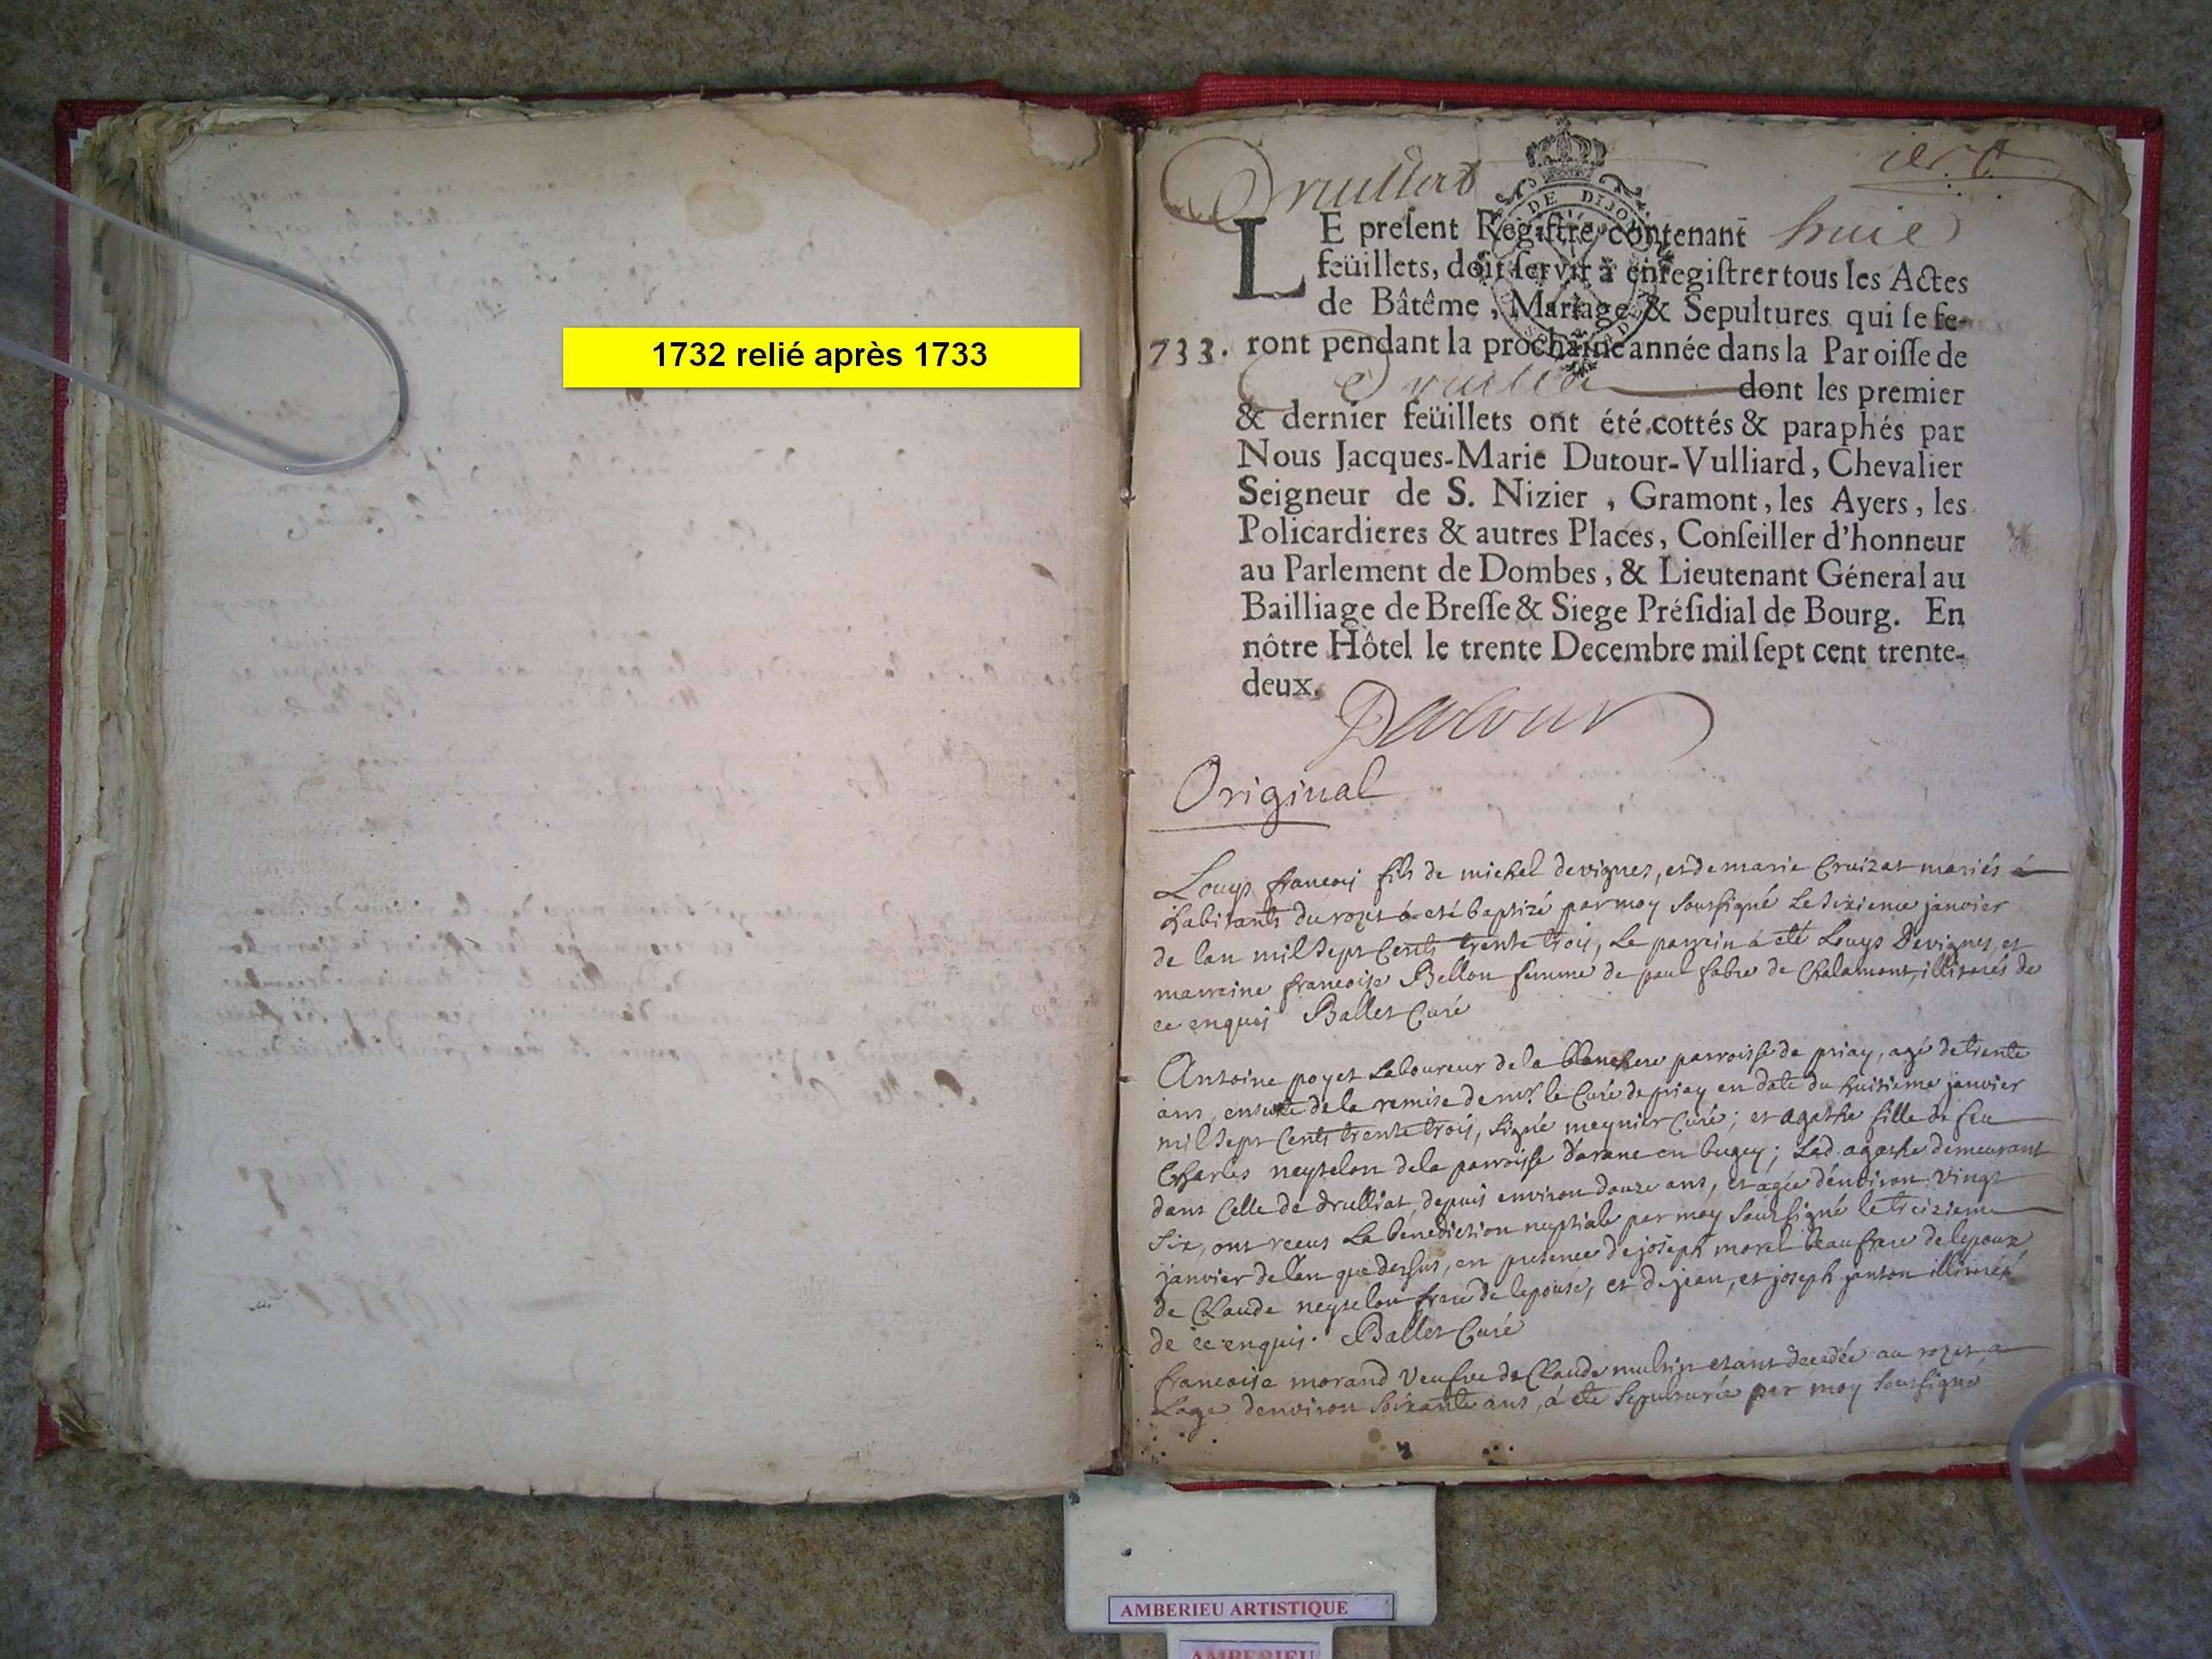 1732 relié après 1733
Druillat
DE DIJON
LE preſent Regiſtre contenant huit
feüillets, doit ſervir à enregiſtrer tous les Actes
de Bâtême, Mariage & Sepultures qui ſe fe-
733. ront pendant la prochaine année dans la Paroiſſe de
Druillia dont les premier
& dernier feüillets ont été cottés & paraphés par
Nous Jacques-Marie Dutour-Vulliard, Chevalier
Seigneur de S. Nizier, Gramont, les Ayers, les
Policardieres & autres Places, Conſeiller d'honneur
au Parlement de Dombes, & Lieutenant Géneral au
Bailliage de Breſſe & Siege Préſidial de Bourg. En
nôtre Hôtel le trente Decembre mil ſept cent trente-
deux.
Dutour
Original
Louys francois fils de michel devignes, et de marie Cruizat mariés
habitants du rozet à eté baptizé par moy soussigné le sixieme janvier
de lan mil sept Cents trente trois, le parrein à eté Louys Devignes, et
marreine francoise Bellon femme de paul fabre de Chalamont, illiterés de
ce enquis Ballet Curé
Antoine poyet laboureur de la blanchere parroisse de priay, agé de trente
ans, ensuitte de la remise de mr. le Curé de priay en date du huitieme janvier
mil sept Cents trente trois, signé meynier Curé; et agathe fille de feu
Charles neyselon de la parroisse d'arane en bugey; lad. agathe demeurant
dans Celle de drulliat, depuis environ douze ans, et agée d'environ vingt
six, ont receus la benediction nuptiale par moy soussigné le treizieme
janvier de l'an que dessus, en presence de joseph morel beaufrere de lepoux
de Claude neyselon frere de lepouse, et de jean, et joseph janton illiterés
de ce enquis. Ballet Curé
francoise morand veufve de Claude multin etant decedée au rozet, a
Lage denviron soixante ans, à eté sepulturée par moy soussigné
AMBERIEU ARTISTIQUE
AMBERIEU